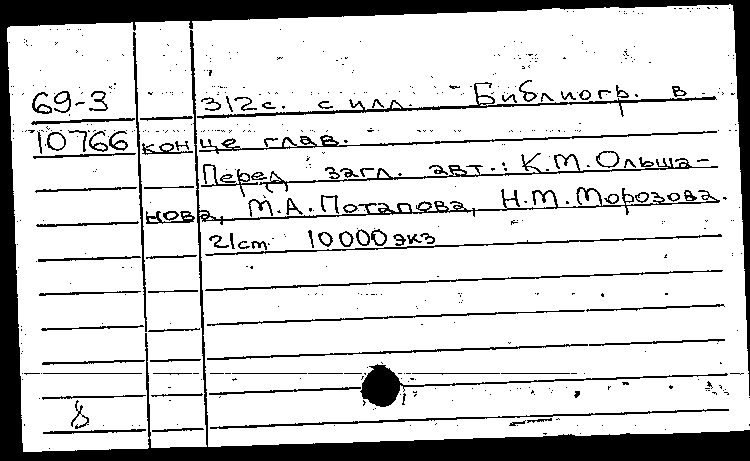 69-3 312с. с илл. Библиогр. в
10766 конце глав.
Перед загл. авт.: К.М.Ольша-
нова, М.А.Потапова, Н.М.Морозова.
21см 10000экз
8